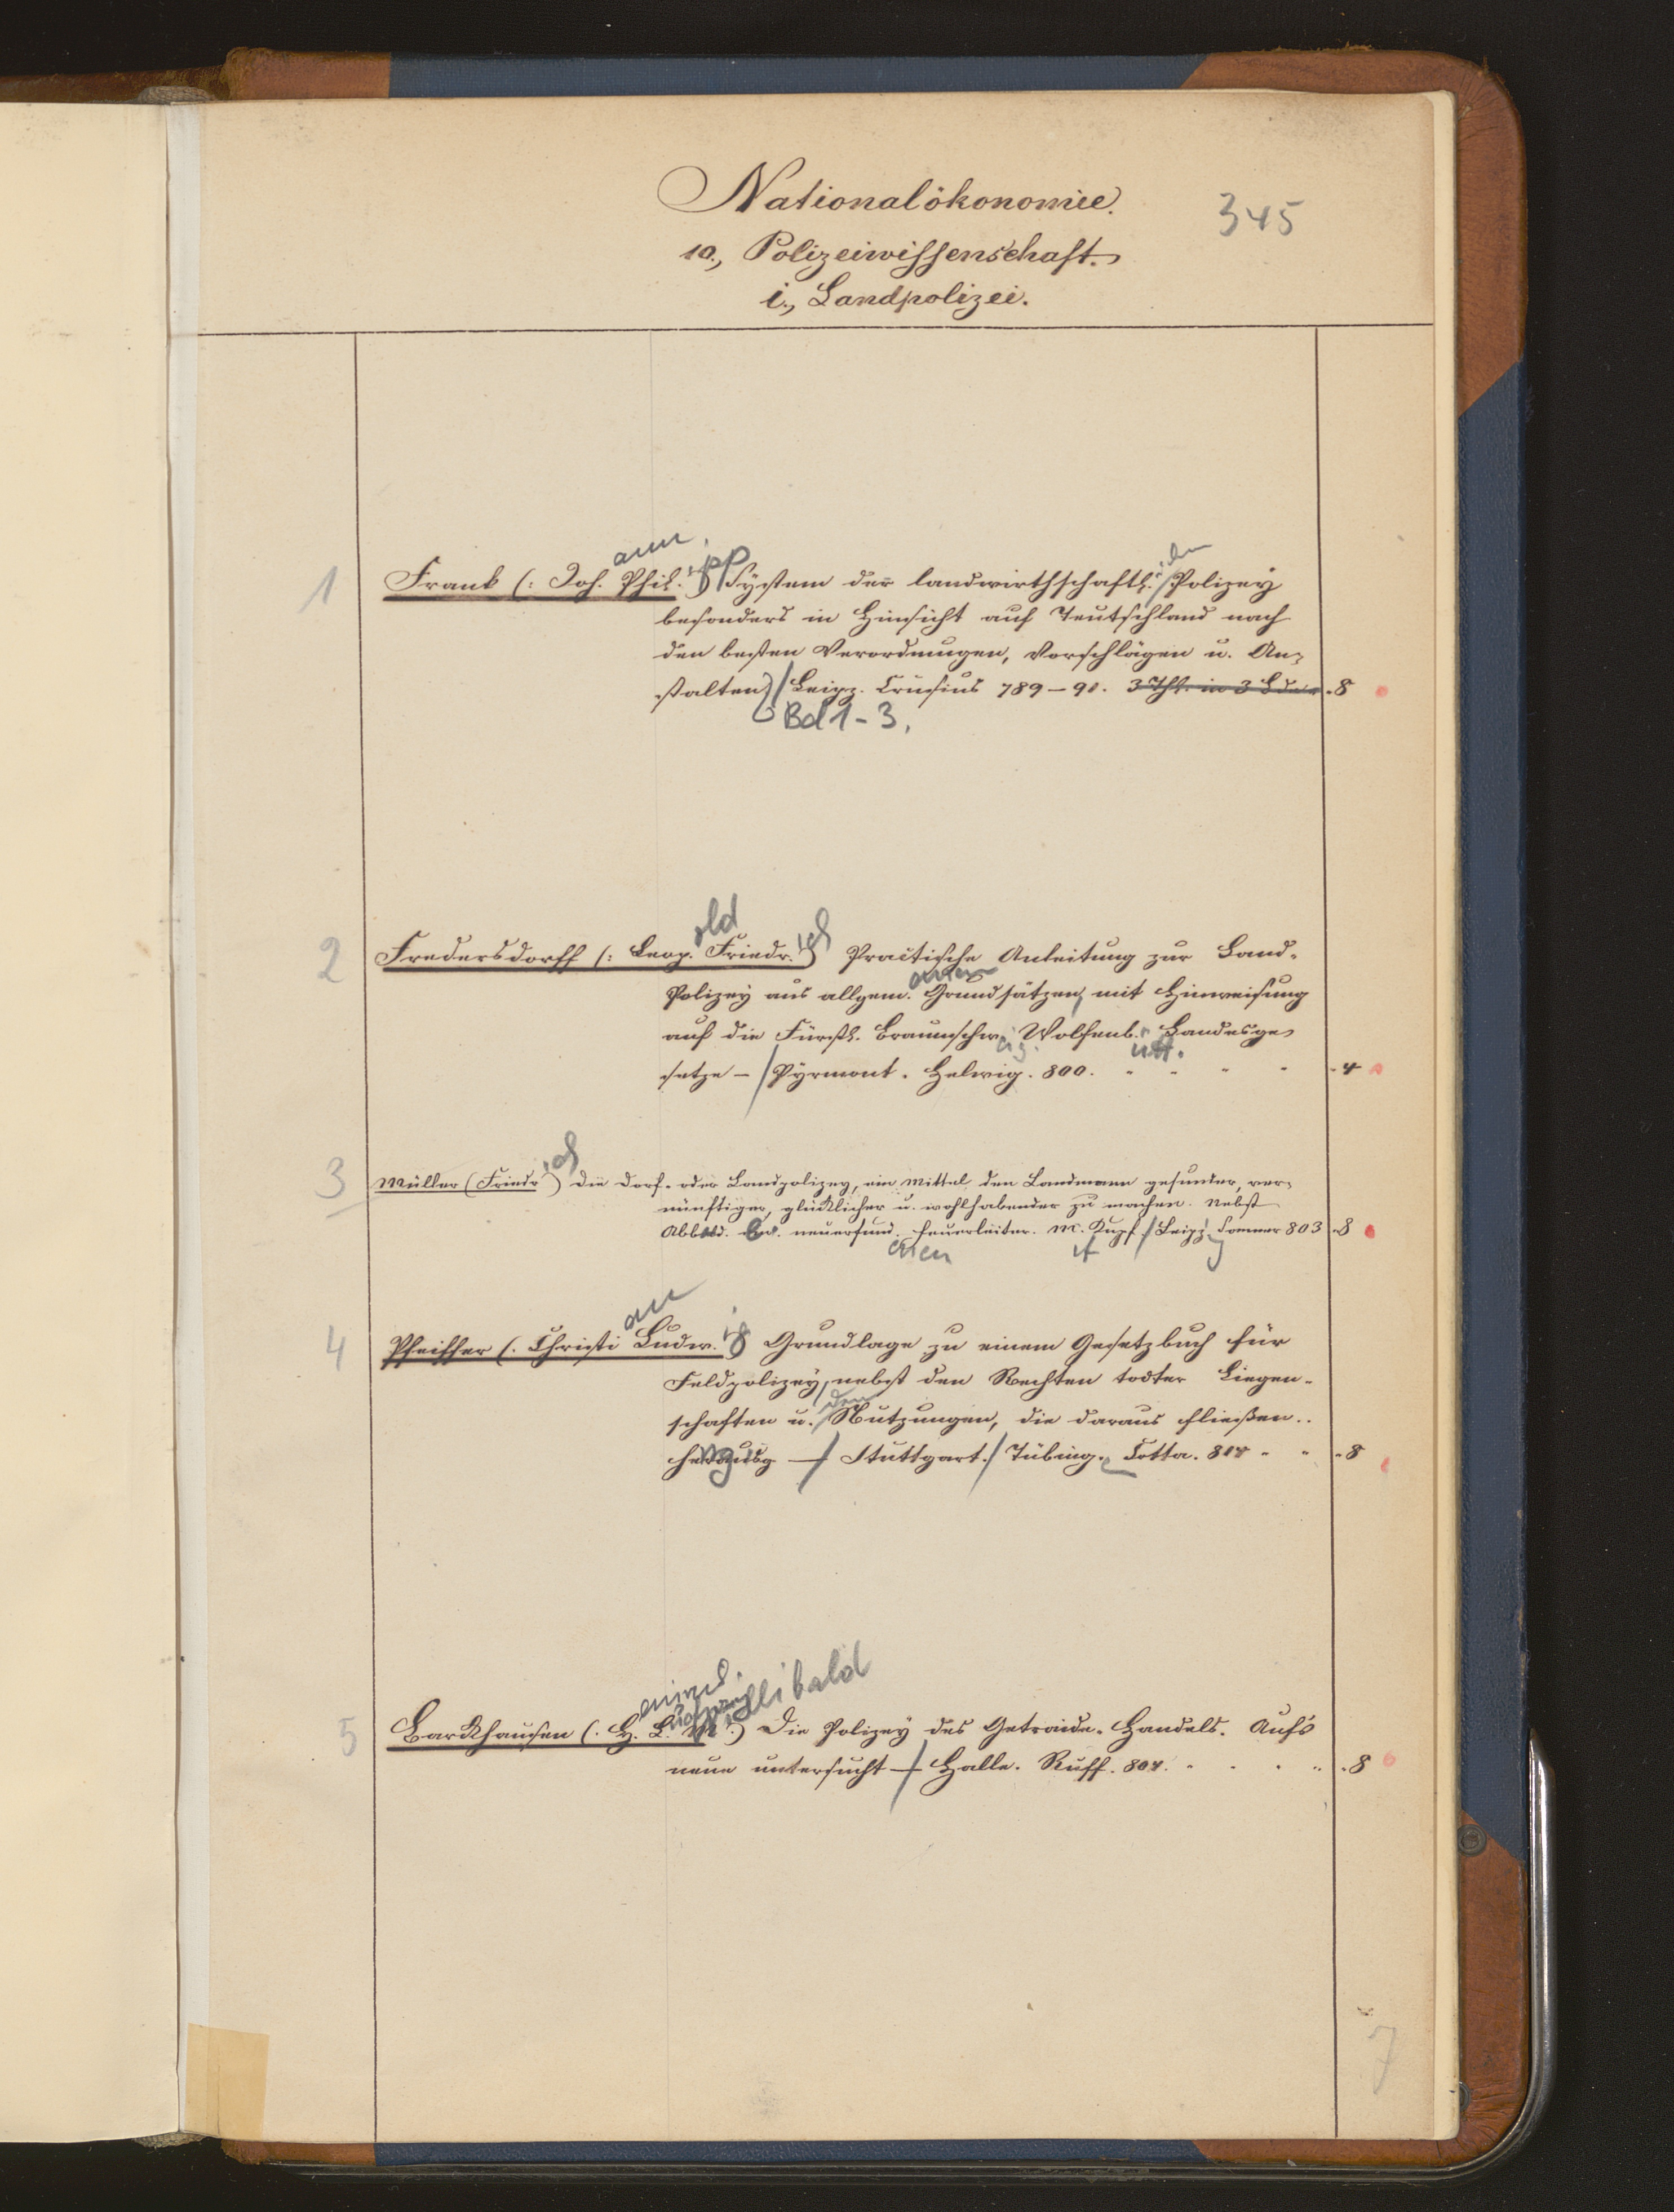 Nationalökonomie.
345
10., Polizeiwissenschaft.
i., Landpolizei.
ann
ipp
1 Frank (: Joh. Phil. :) System der landwirthschaftl. Polizey
besonders in Hinsicht auf Teutschland nach
den besten Verordnungen, Vorschlägen u. An-
stalten) / Leipz. Crusius 789-91. 3 Thl. in 3 Bden .8
Bd 1-3.
old
ich
2 Fredersdorff (: Leop. Friedr. :) Practische Anleitung zur Land-
Polizey aus allgem. Grundsätzen, mit Hinweisung
auf die Fürstl. Braunschw. Wolfenb. Landesge-
ig. ütt.
setze - / Pyrmont. Helwig. 800. " " " " . 4
ich
3 Müller (Friedr) die Dorf- oder Landpolizey, ein Mittel den Landmann gesunder, ver-
nünftiger, glücklicher u. wohlhabender zu machen. Nebst
Abbild. neuerfund. Feuerleiter. M. Kupf. / Leipz. Sommer 803 .8
enen
an
ig
4 Pfeiffer (. Christi Ludw. :) Grundlage zu einem Gesetzbuch für
Feldpolizey, nebst den Rechten todter Liegen-
den
schaften u. Nutzungen, die daraus fließen..
herausg - / Stuttgart. / Tübing. Cotta. 814 " " . 8
einrich
illibald
5 Barkhausen (. H. L. W. :) Die Polizey des Getraide-Handels. Aufs
neue untersucht - / Halle. Ruff. 804. " . . " . 8
7